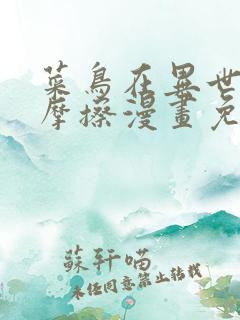 菜鳥在異世
摩擦漫畫免
蘇軒喵
未經同意禁止轉載